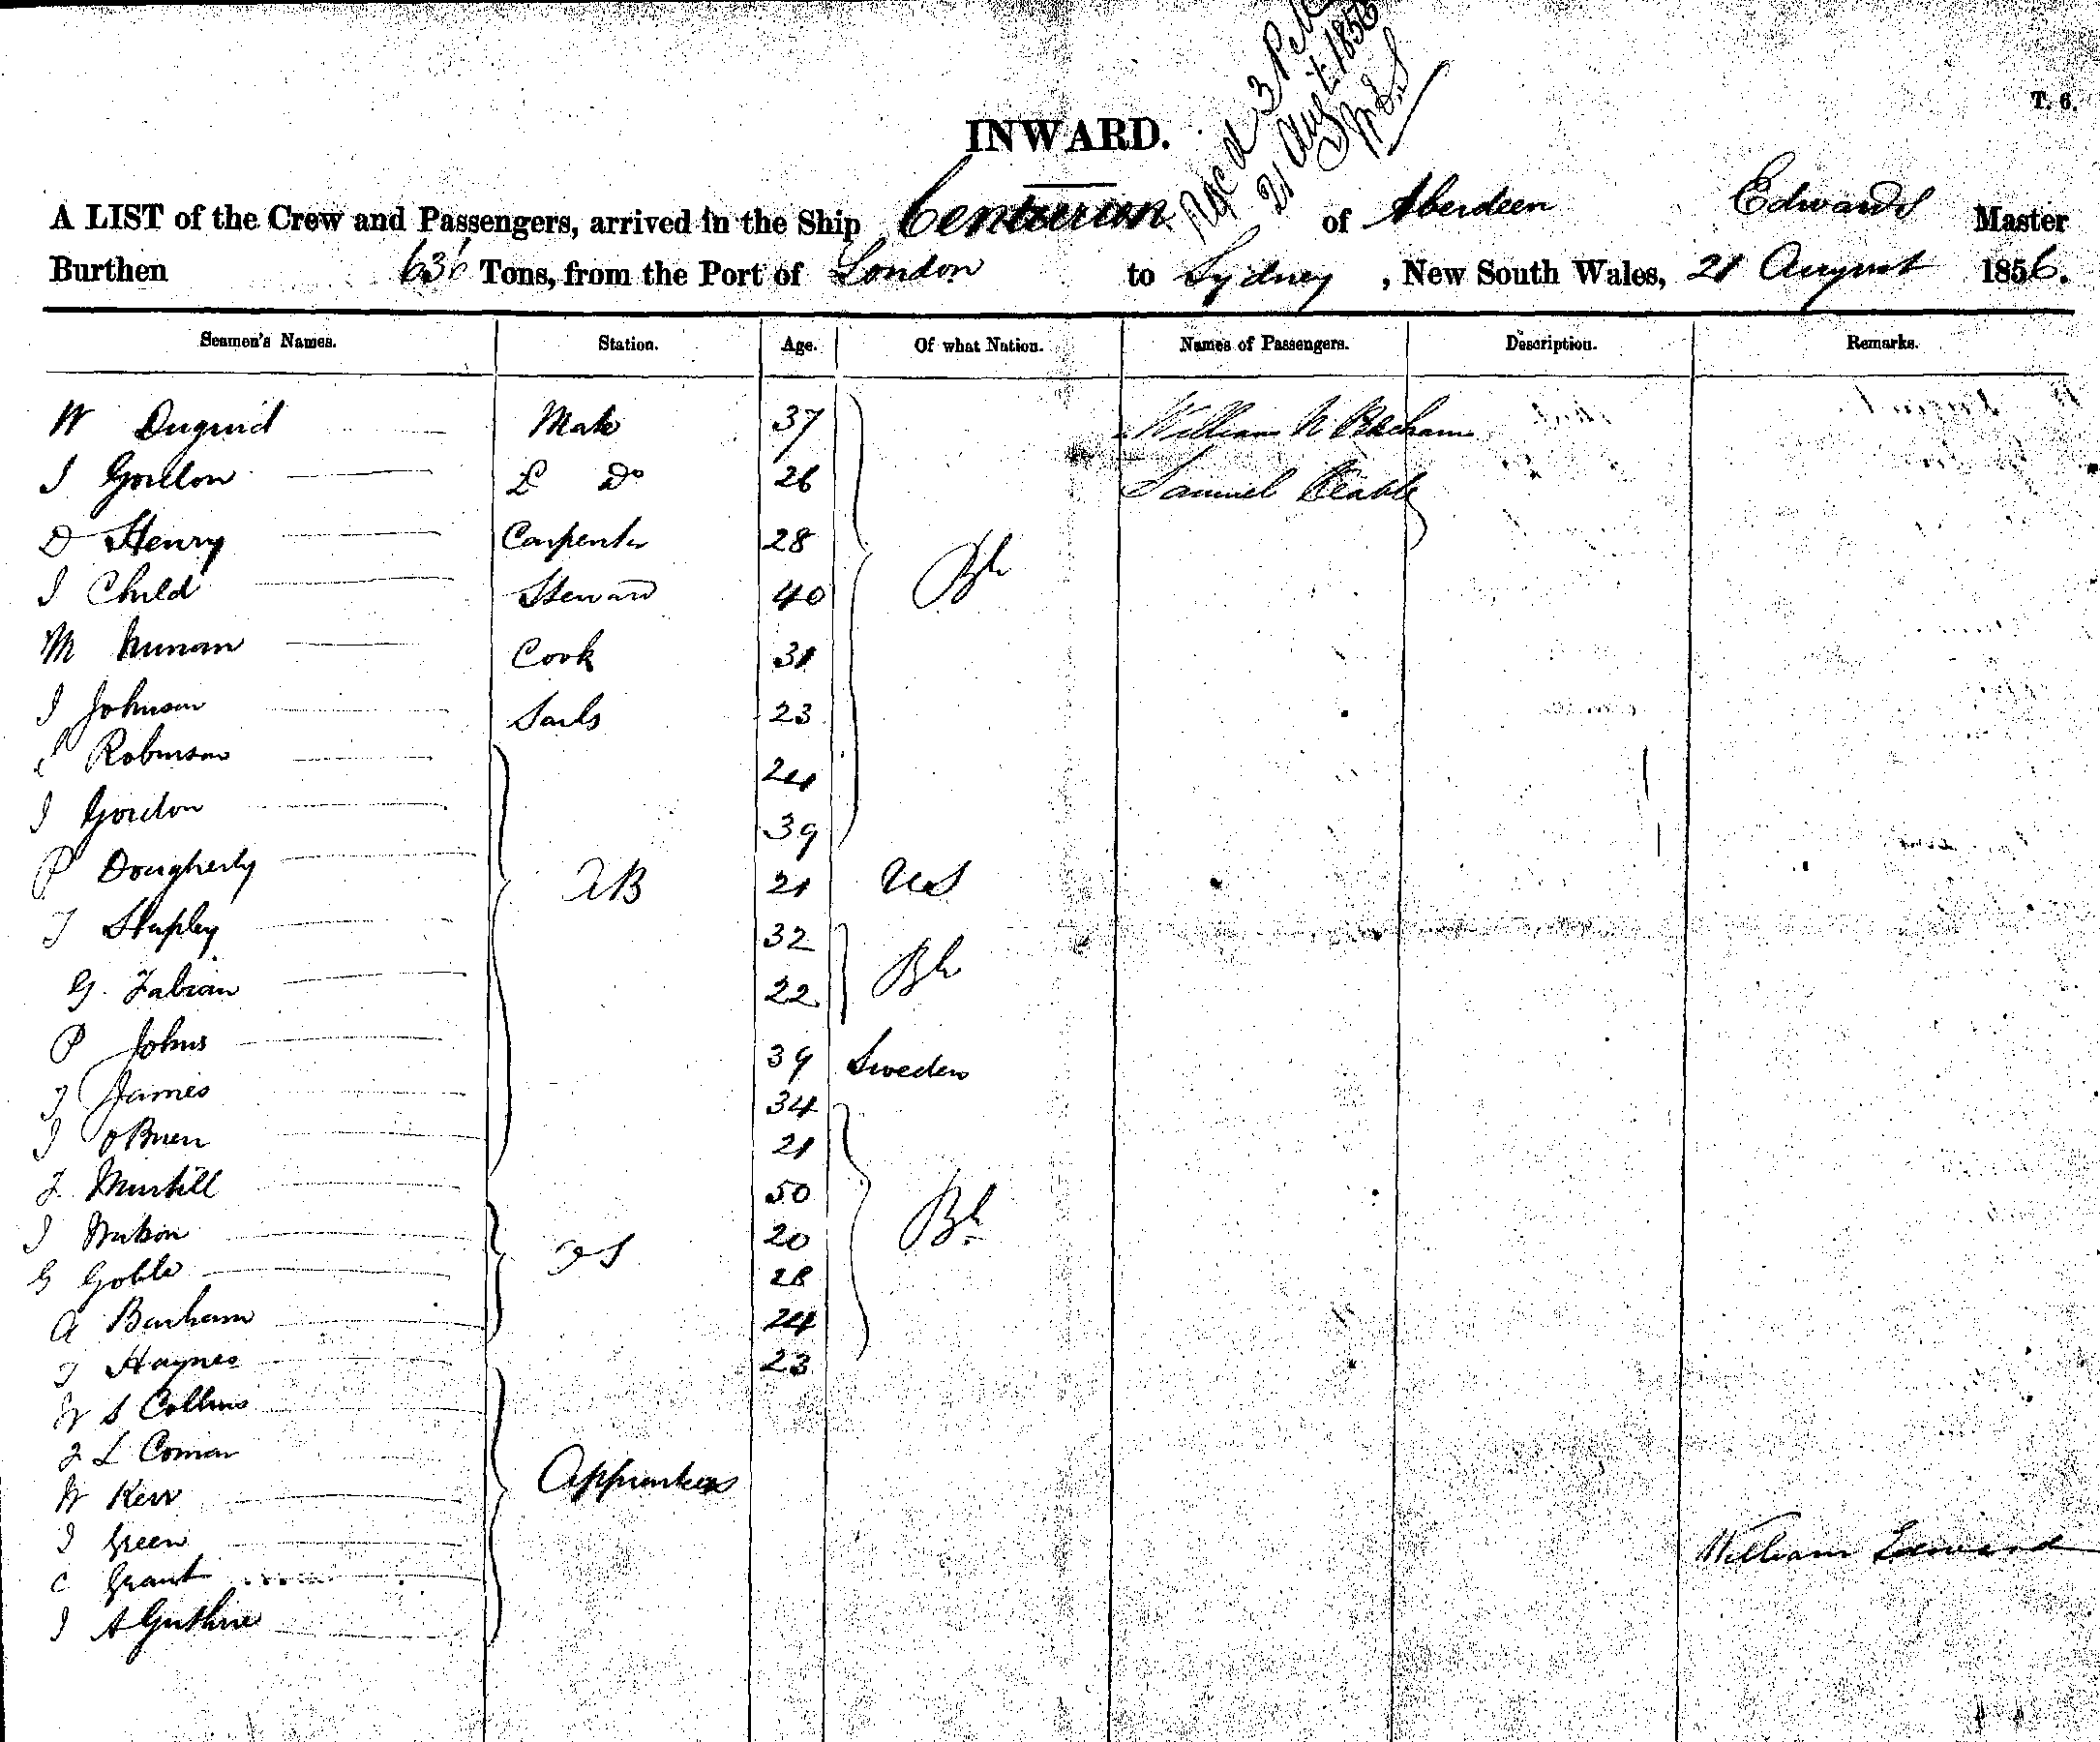 T. 6.
Recd 3 P.M.
21 Augt. 1856
INWARD.
A LIST of the Crew and Passengers, arrived in the Ship Centurion of Aberdeen Edwards Master
Burthen 636 Tons, from the Port of London to Sydney, New South Wales, 21 August 1856.
Seamen's Names. Station. Age. Of what Nation. Names of Passengers. Description. Remarks.
W Duguid Mate 37 William N
J Gordon 2 Do 26 Samuel
D Henry Carpenter 28
J Child Steward 40 Bh
M Nunan Cook 31
J Johnson Sails 23
Robinson 24
J Gordon 39
P Dougherty AB 21 US
T Stapley 32
G. Fabian 22 Bh
P Johns 39 Sweden
J James 34
J OBrien 21
50
J 20 Bh
G Goble OS 28
A Barham 24
J Haynes 23
W S Collins
J L
W Kerr Apprentices
J Green
C Grant
J A Guthrie
William Edward